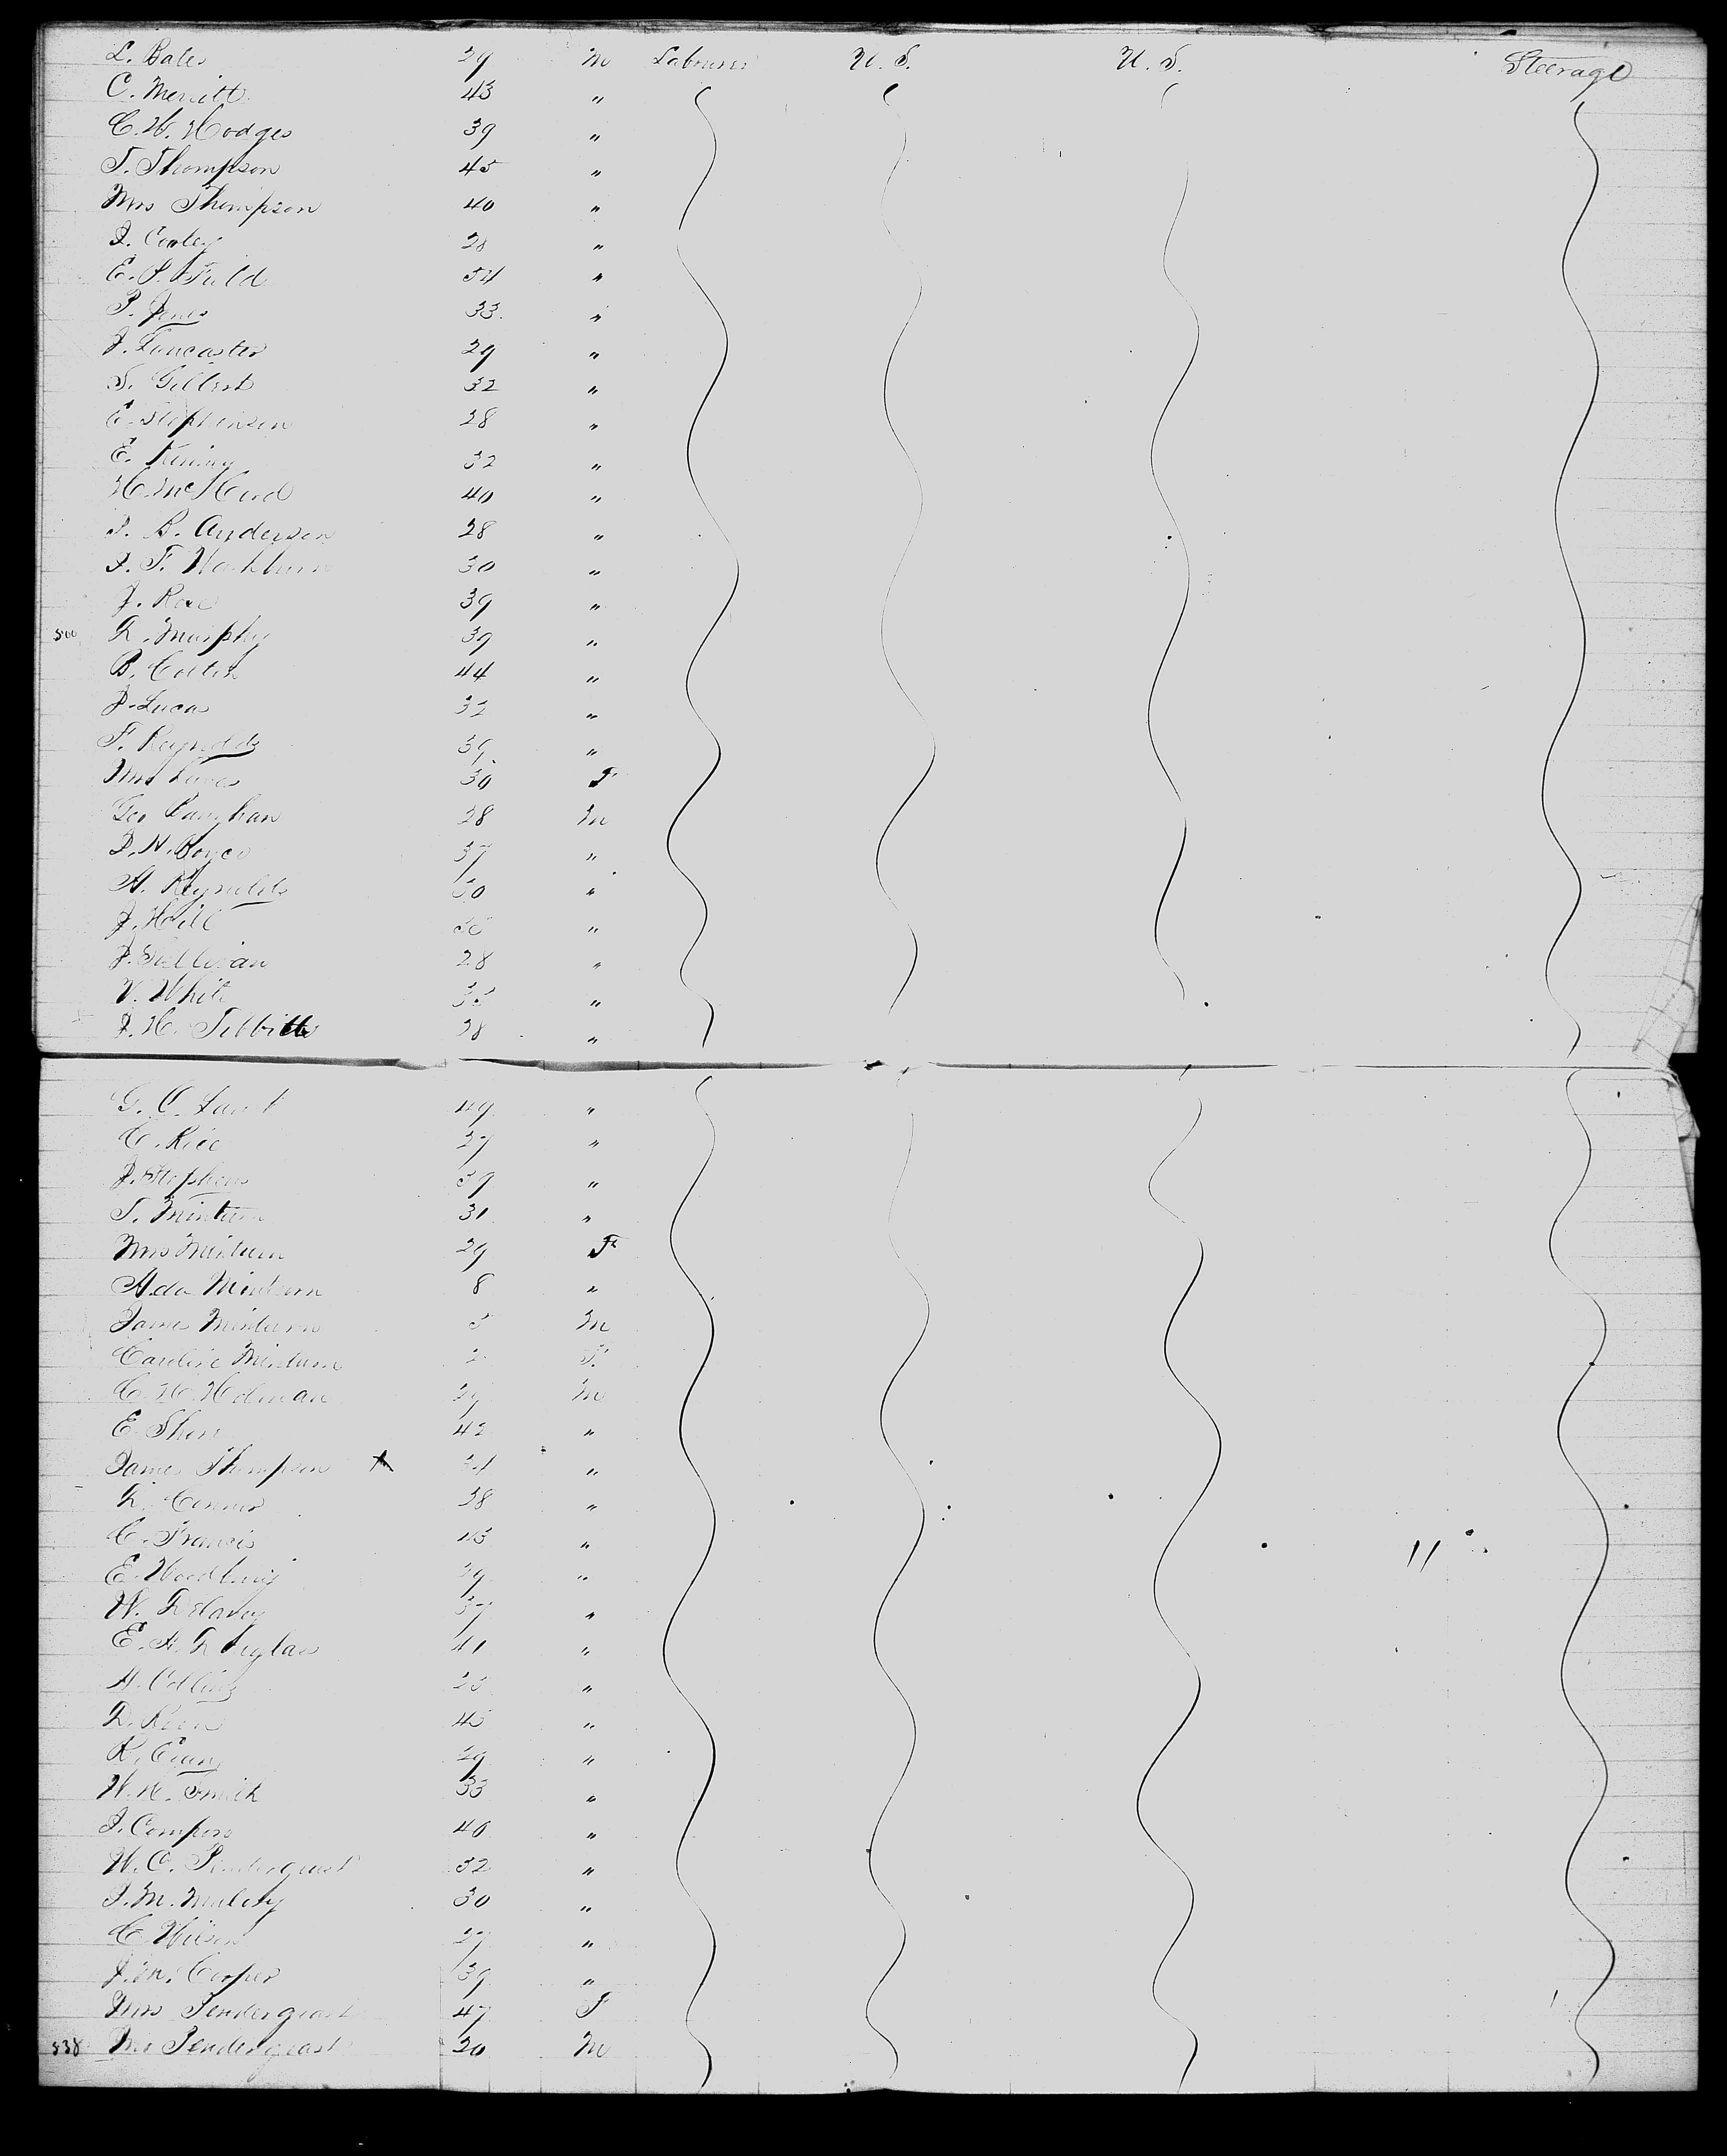 L. Bates 29 M Labourer U. S. U. S. Steerage
C. Merritt 43 "
C. W. Hodges 39 "
T. Thompson 45 "
Mrs Thompson 40 "
J. Conley 28 "
E. P. Field 54 "
P. Jones 33 "
J. Lancaster 29 "
S. Gilbert 32 "
E. Stephenson 28 "
E. 32 "
H. McHerd 40 "
J. B. Anderson 28 "
J. T. Washburn 30 "
J. Rose 39 "
500 R. Murphy 39 "
B. 44 "
J. Lucas 32 "
F. Reynolds 39 "
Mrs Lucas 30 F
Geo Vaughan 28 M
D. N. Boyce 37 "
A. Reynolds 30 "
J. Hill "
J. Sullivan 28 "
V. White 35 "
J. H. Tibbitts 38 "
G. C. Lamb 49 "
C. Rice 27 "
J. Stephens 39 "
T. Minturn 31 "
Mrs Minturn 29 F
Ada Minturn 8 "
James Minturn 5 M
Caroline Minturn 2 F
C. W. Holman 29 M
E. Shea 42 "
James Thompson x 34 "
D. Connor 38 "
C. Francis 43 "
E. Woodbury 29 "
W. Delaney 37 "
E. A. Douglas 41 "
A. Collins 23 "
D. 45 "
R. Evans 29 "
W. H. Smith 33 "
J. Compson 40 "
W. C. Pendergrast 32 "
J. M. Malery 30 "
C. Wilson 27 "
J. M. Cooper 39 "
Mrs Pendergrast 47 F
538 Mr Pendergrast 20 M